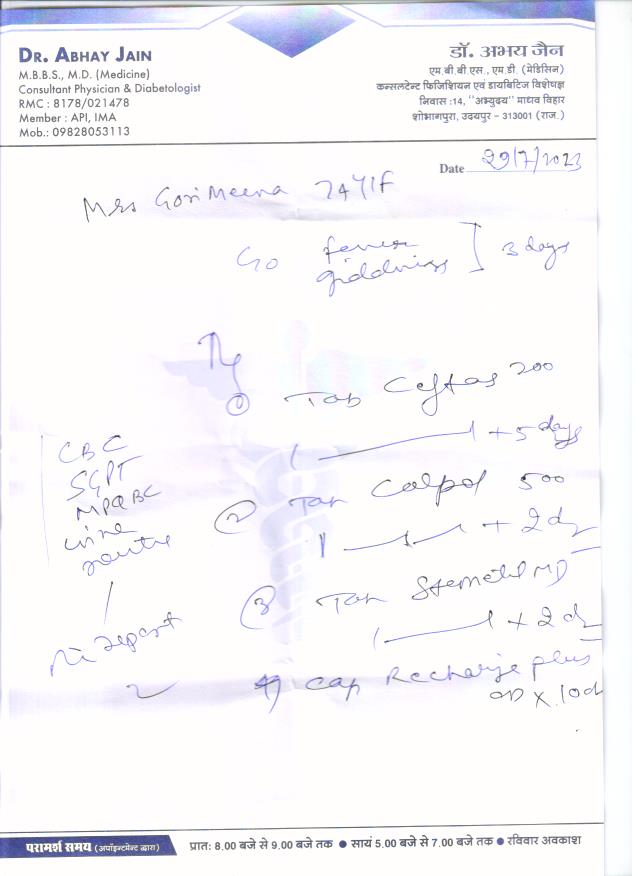 DR. ABHAY JAIN
M.B.B.S., M.D. (Medicine)
Consultant Physician & Diabetologist
RMC : 8178/021478
Member : API, IMA
Mob.: 09828053113
डॉ. अभय जैन
एम.बी.बी.एस., एम.डी. (मेडिसिन)
कन्सलटेन्ट फिजिशियन एवं डायबिटिज विशेषज्ञ
निवास :14, "अभ्युदय" माधव विहार
शोभागपुरा, उदयपुर - 313001 (राज.)
Date 29/7/2023
Mrs Gori Meena 74Y/F
C/O fever
giddiness ] 3 days
① Tab Ceftas 200
1 — 1 + 5 days
CBC
SGPT
MP QBC
urine
routine
② Tab Calpol 500
1 — 1 — 1 + 2 d
③ Tab Stemetil MD
1 — 1 + 2 d
report
4) Cap Recharge plus
OD X 10d
परामर्श समय (अपॉइन्टमेन्ट द्वारा)
प्रातः 8.00 बजे से 9.00 बजे तक ● सायं 5.00 बजे से 7.00 बजे तक ● रविवार अवकाश